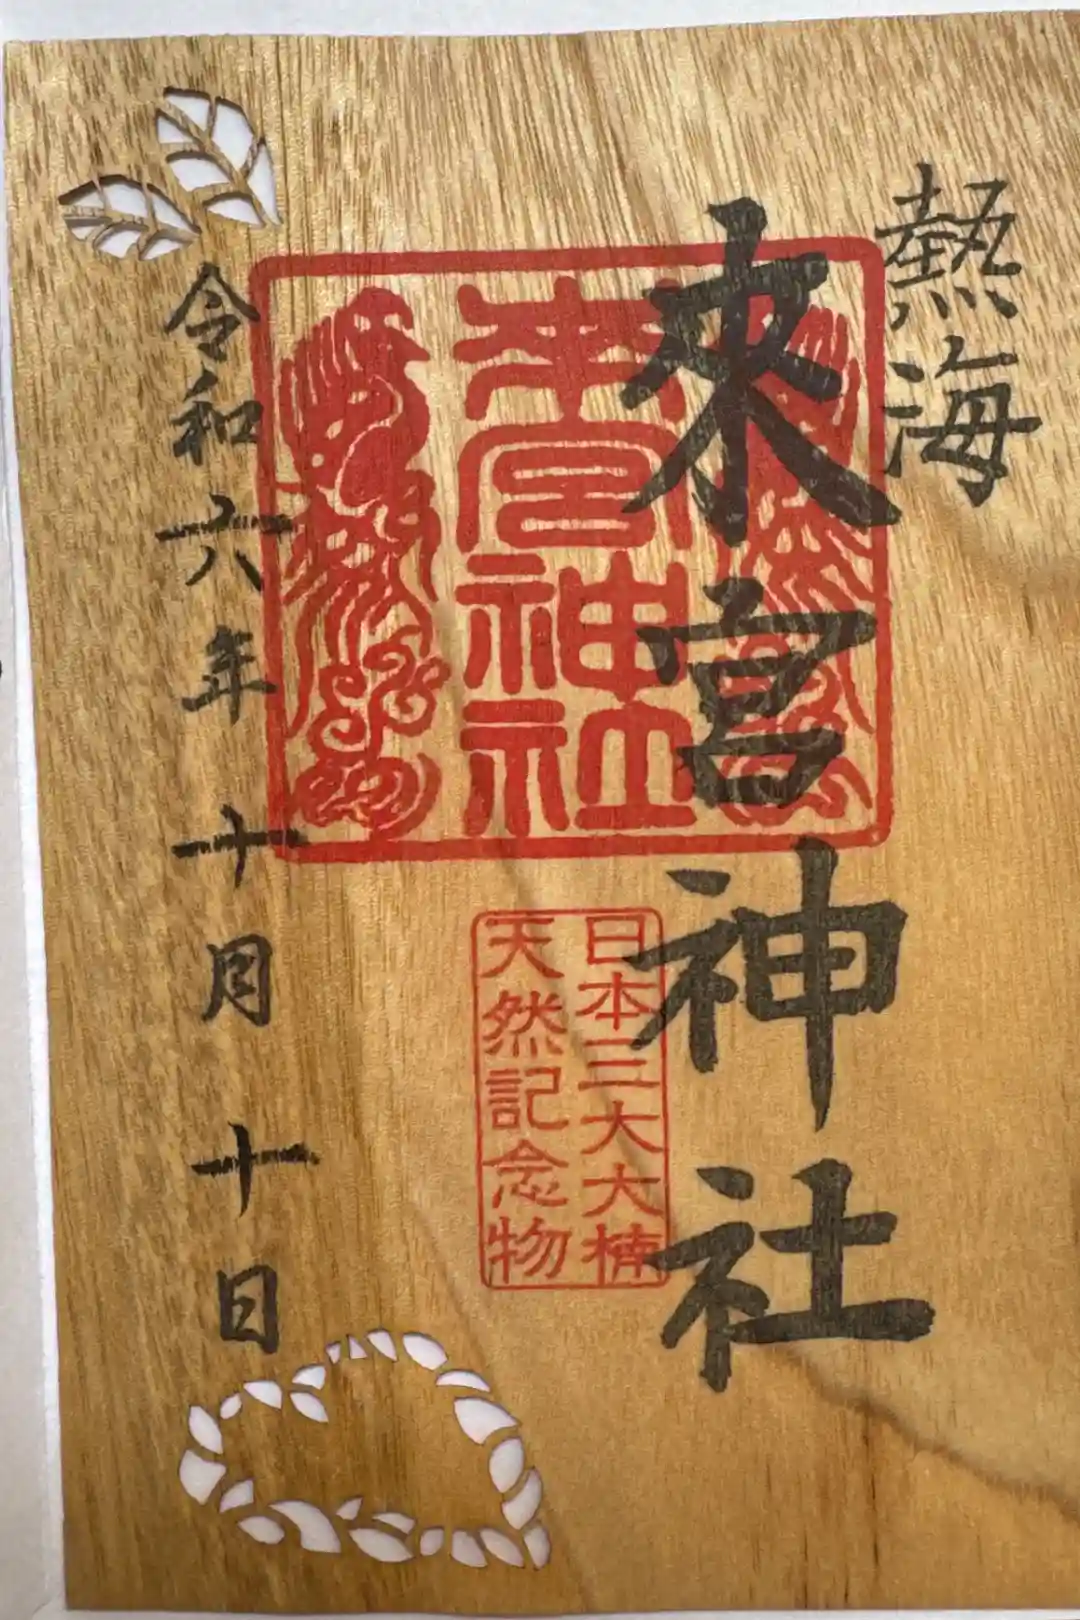 熱海
來宮神社
来宮神社
日本三大大楠
天然記念物
令和六年十月十日